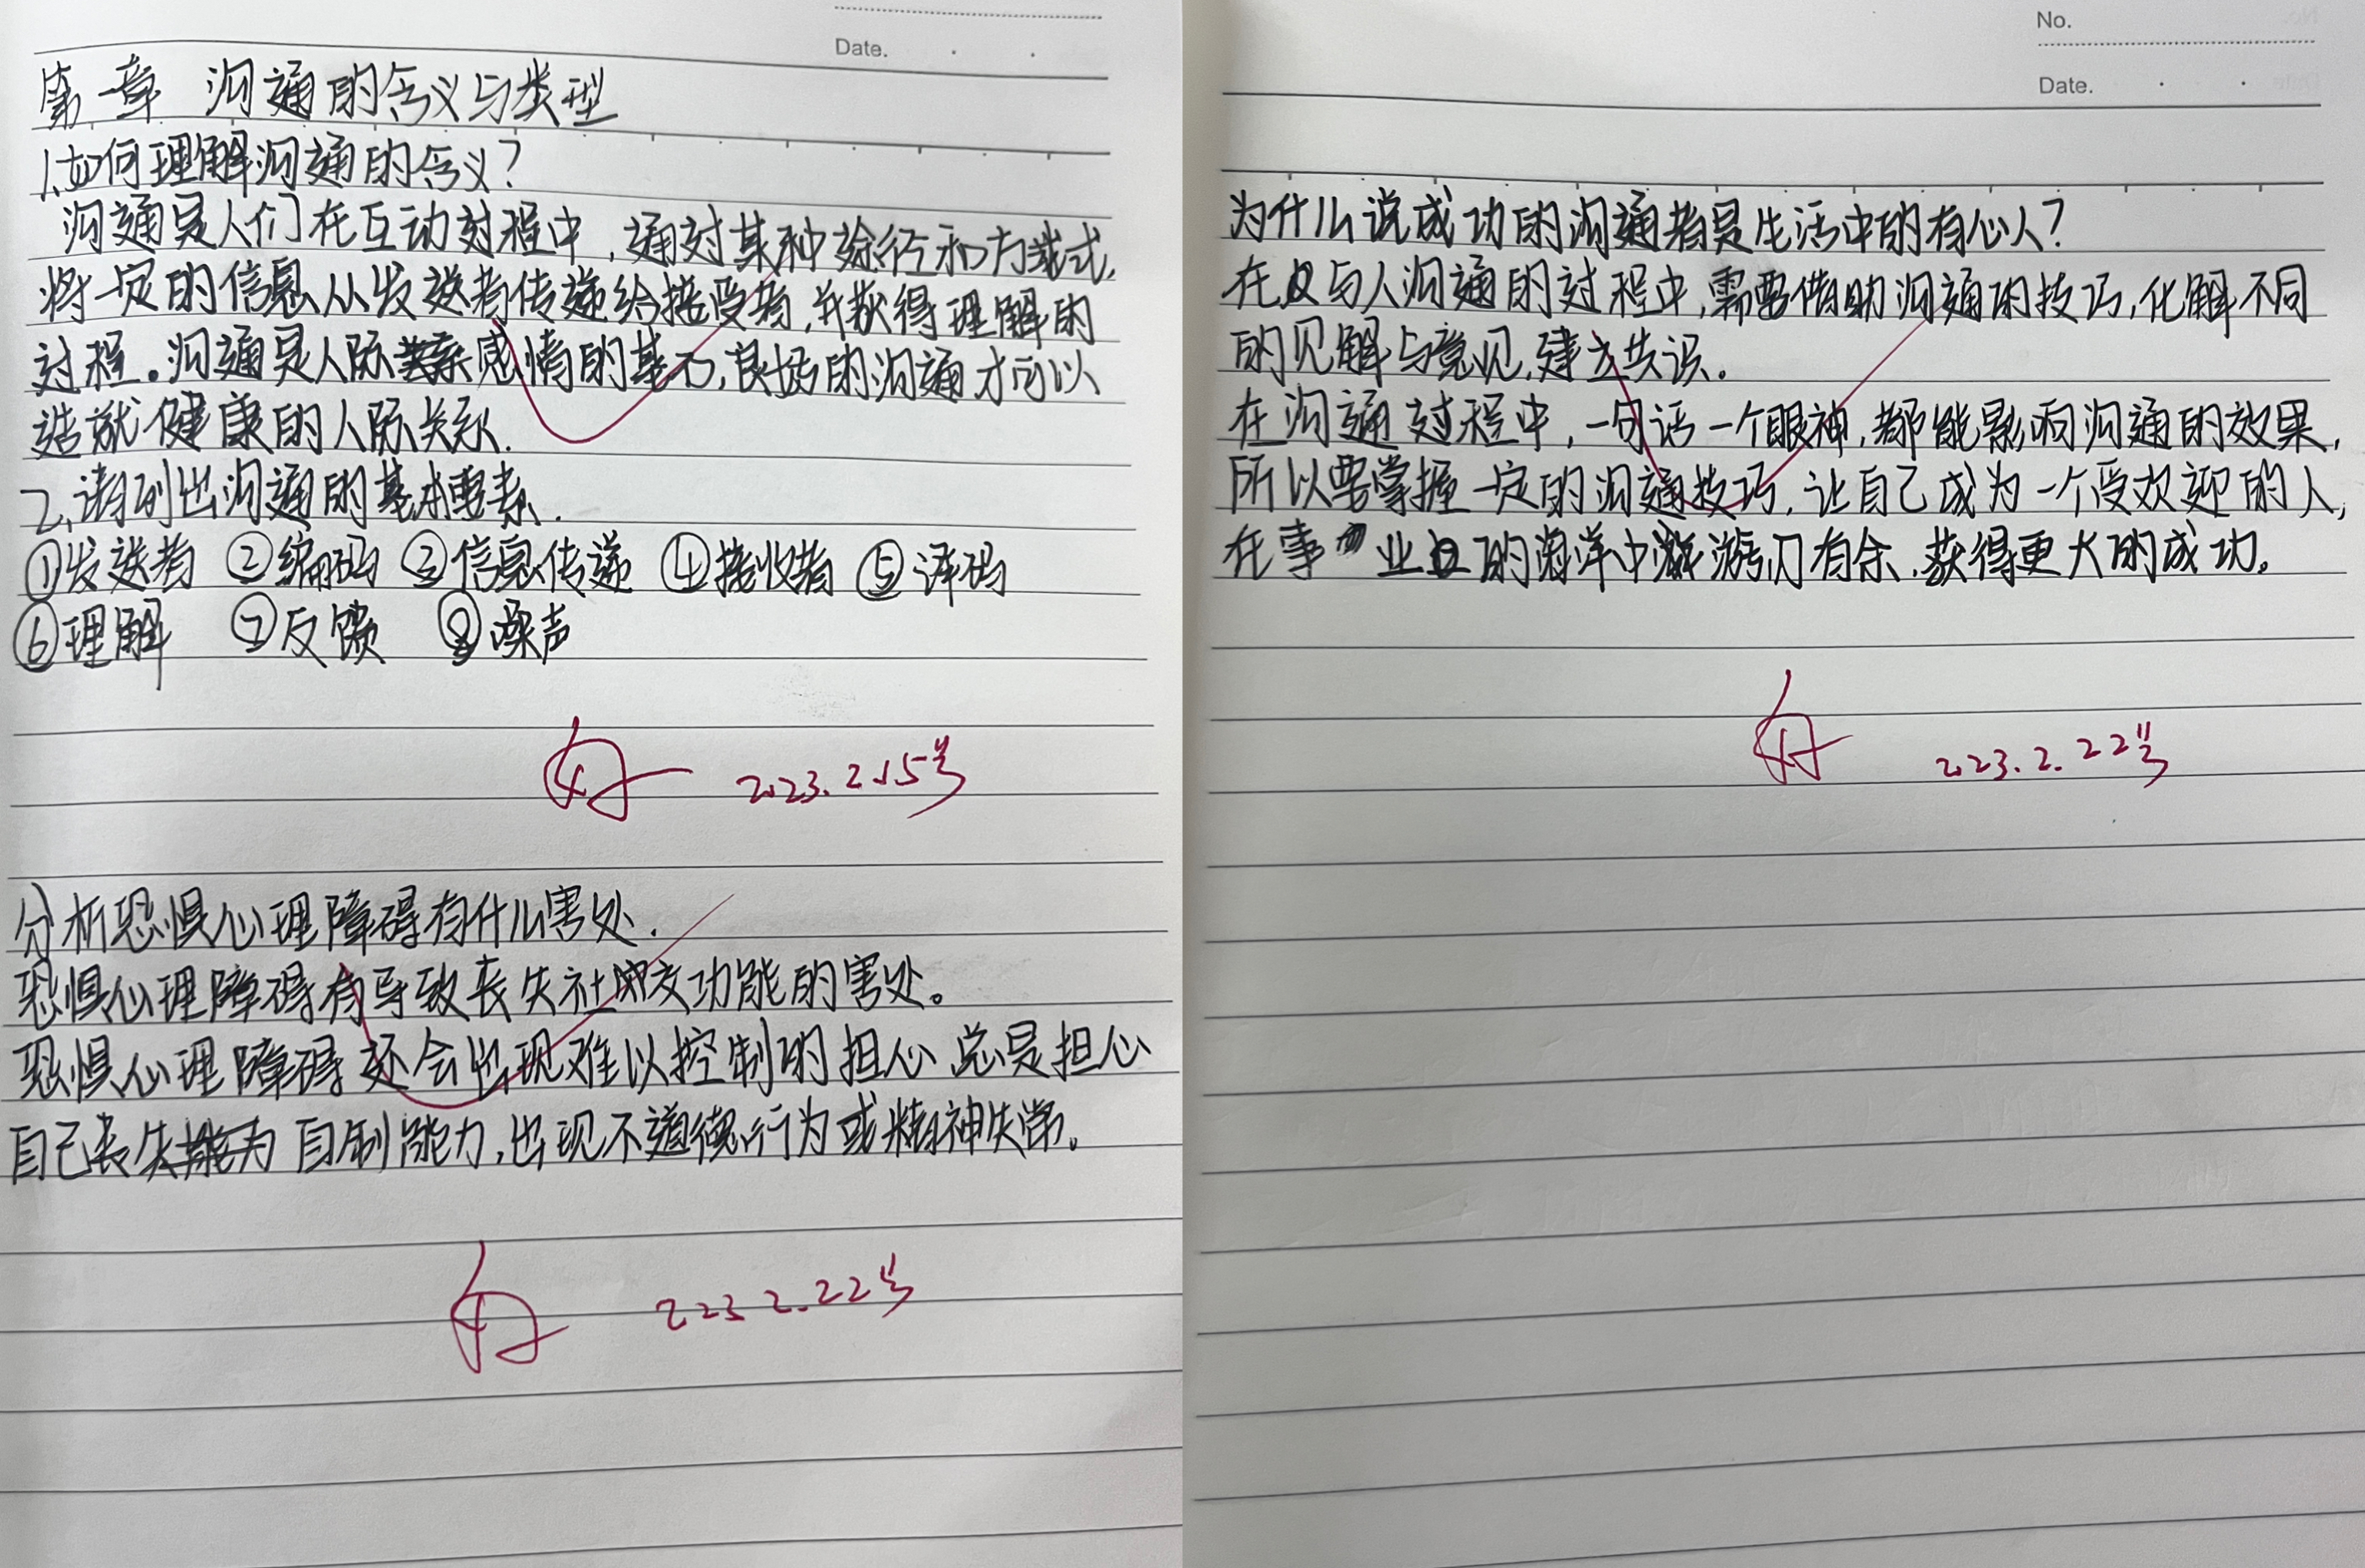 Date.
第一章 沟通的含义与类型
1.如何理解沟通的含义?
沟通是人们在互动过程中,通过某种途径和方式,
将一定的信息从发送者传递给接受者,并获得理解的
过程。沟通是人际感情的基石,良好的沟通才可以
造就健康的人际关系.
2.请列出沟通的基本要素.
①发送者 ②编码 ③信息传递 ④接收者 ⑤译码
⑥理解 ⑦反馈 ⑧噪声
好 2023.2.15号
分析恐惧心理障碍有什么害处.
恐惧心理障碍有导致丧失社交功能的害处。
恐惧心理障碍还会出现难以控制的担心,总是担心
自己丧失自制能力,出现不道德行为或精神失常。
好 2023 2.22号
No.
Date.
为什么说成功的沟通者是生活中的有心人?
在与人沟通的过程中,需要借助沟通的技巧,化解不同
的见解与意见,建立共识.
在沟通过程中,一句话一个眼神,都能影响沟通的效果,
所以要掌握一定的沟通技巧,让自己成为一个受欢迎的人,
在事业的海洋中游刃有余.获得更大的成功。
好 2023.2.22号